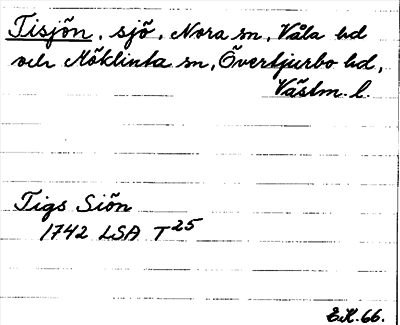 Tisjön, sjö, Nora sn, Våla hd
och Möklinta sn, Övertjurbo hd,
Västm. l.
Tigs Siön
1742 LSA T25
E.K. 66.